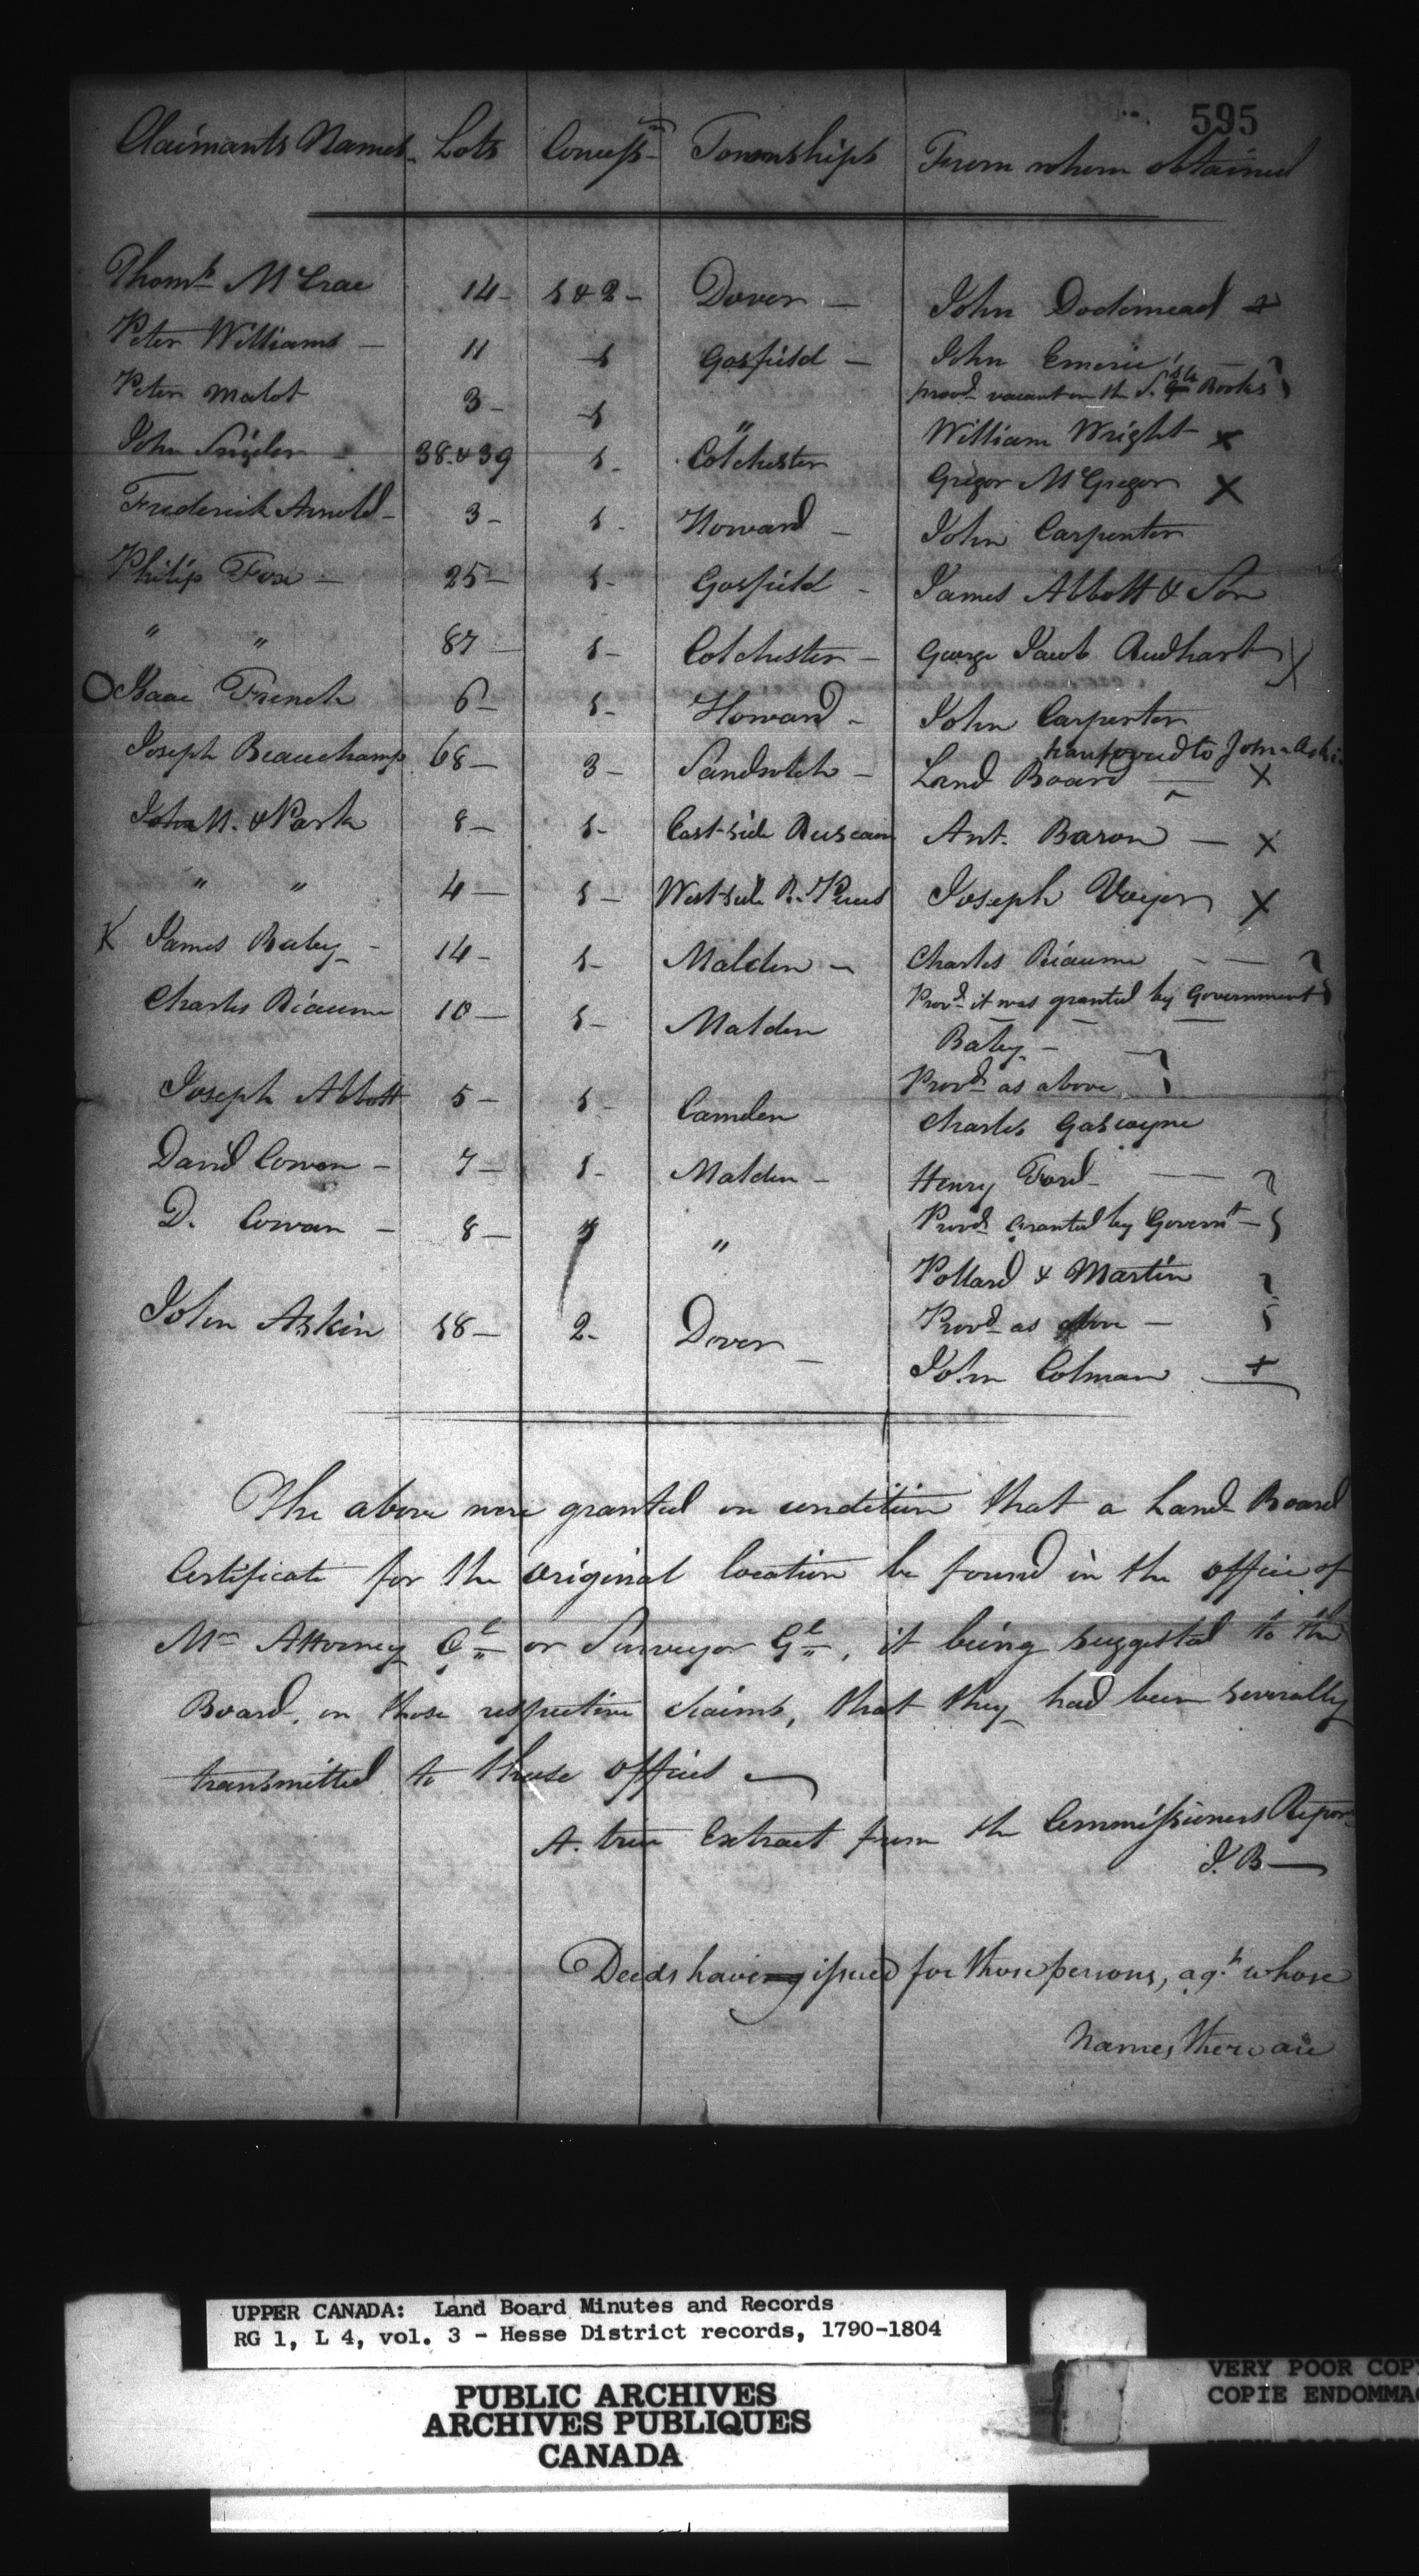 595
Claimants Names Lots Concessn Townships From whom obtained
Thoms McCrae 14 1 & 2 Dover John Dodemead +
Peter Williams 11 1 Gosfield John Emerie
provd vacant on the S. Gls Books
Peter Malot 3 1 " William Wright x
John Snider 38 & 39 1 Colchester Gregor McGregor X
Frederick Arnold 3 1 Howard John Carpenter
Philip Fox 25 1 Gosfield James Abbott & Son
" " 87 1 Colchester George Jacob Rudhart X
O Isaac French 6 1 Howard John Carpenter
transferred to John Aski
Joseph Beauchamp 68 3 Sandwich Land Board X
John M. & Park 8 1 East side Ruscam Ant. Baron X
" " 4 1 West side R. Puces Joseph Voyer X
X James Baby 14 1 Malden Charles Réaume
Provd it was granted by Government
Charles Réaume 10 1 Malden Baby
Provd as above
Joseph Abbott 5 1 Camden Charles Gascoyne
David Cowan 7 1 Malden Henry Ford
Provd Granted by Governt
D. Cowan 8 1 " Pollard & Martin
Provd as above
John Askin 18 2 Dover John Colman +
The above were granted on condition that a Land Board
Certificate for the original location be found in the office of
Mr Attorney Gl or Surveyor Gl, it being suggested to the
Board, on those respective claims, that they had been severally
transmitted to those offices
A true Extract from the Commissioners Repor
J. B
Deeds having issued for those persons, agt whose
Names there are
UPPER CANADA: Land Board Minutes and Records
RG 1, L 4, vol. 3 - Hesse District records, 1790-1804
PUBLIC ARCHIVES
ARCHIVES PUBLIQUES
CANADA
VERY POOR COP
COPIE ENDOMMA